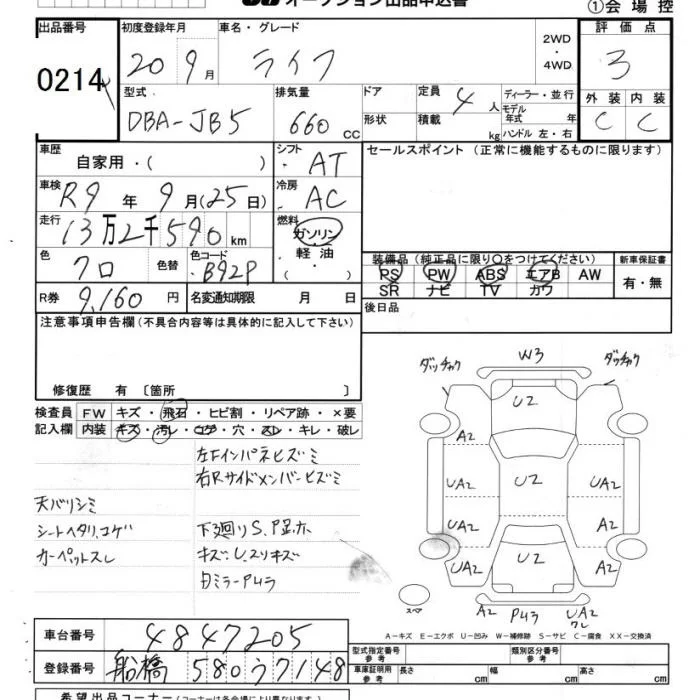 オークション出品申込書 ①会場控
出品番号 初度登録年月 車名・グレード 2WD・4WD 評価点
0214 20 9月 ライフ 3
型式 排気量 ドア 定員 4人 ディーラー・並行 外装 内装
DBA-JB5 660cc 形状 積載 kg モデル年式 年 ハンドル 左・右 C C
車歴 自家用・( ) シフト・AT セールスポイント(正常に機能するものに限ります)
車検 R9年 9月(25日) 冷房・AC
走行 13万2千590km 燃料 ガソリン・軽油・( )
色 クロ 色替 色コード B92P
装備品(純正品に限り○をつけてください) 新車保証書
PS PW ABS エアB AW 有・無
SR ナビ TV カワ
R券 9,160円 名変通知期限 月 日 後日品
注意事項申告欄(不具合内容等は具体的に記入して下さい)
修復歴 有〔箇所 〕
検査員 FW キズ・飛石・ヒビ割・リペア跡・×要
記入欄 内装 キズ・汚レ・コゲ・穴・スレ・キレ・破レ
左Fインパネヒズミ
右Rサイドメンバーヒズミ
天バリシミ
シートヘタリ、コゲ 下廻りS、
カーペットスレ キズ、U、スリキズ
ダッチャク W3 ダッチャク
U2
A2
UA2 U2 UA2
UA2 A2
UA2 U2 A2
スペア A2 UA2
ワレ
A-キズ E-エクボ U-凹み W-補修跡 S-サビ C-腐食 XX-交換済
車台番号 4847205
登録番号 船橋 580 ワ 7148
型式指定番号 参考 類別区分番号 参考
車庫証明用 参考 長さ cm 幅 cm 高さ cm
希望出品コーナー(コーナー名は各会場により異なります。)